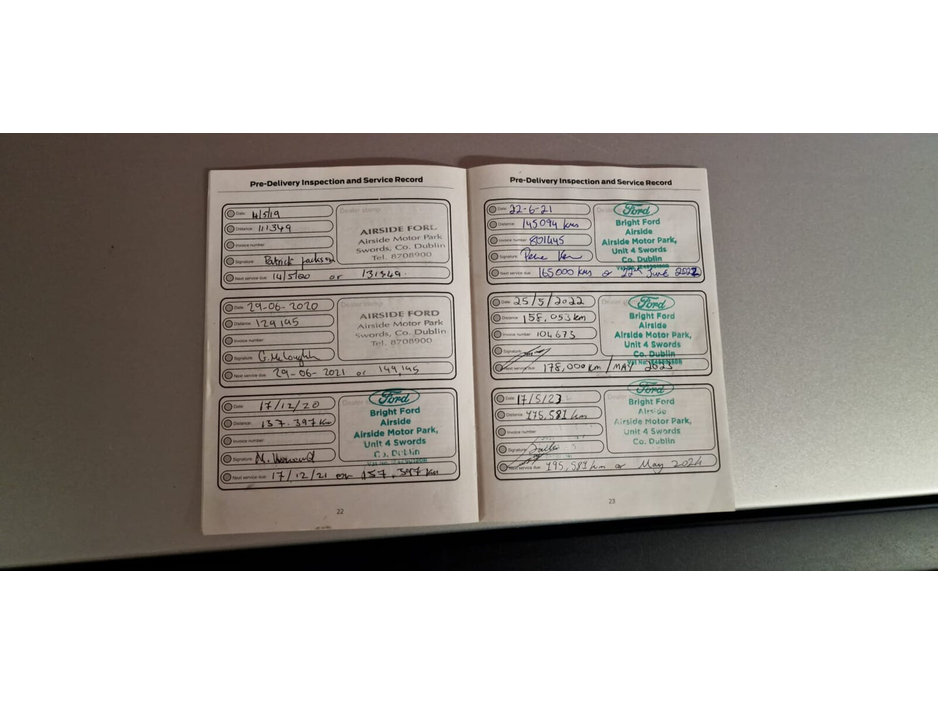 Pre-Delivery Inspection and Service Record
Date: 14/5/19
Distance: 111349
Invoice number
Signature Patrick Jackson
Next service due 14/5/20 or 131349.
Dealer stamp
AIRSIDE FORD
Airside Motor Park
Swords, Co. Dublin
Tel. 8708900
Date: 29-06-2020
Distance: 129,145
Invoice number
Signature G. McLoughlin
Next service due 29-06-2021 or 149,145
AIRSIDE FORD
Airside Motor Park
Swords, Co. Dublin
Tel. 8708900
Date: 17/12/20
Distance: 137.397 Km
Invoice number
Signature
Next service due: 17/12/21 or 157,397 Km
Ford
Bright Ford
Airside
Airside Motor Park,
Unit 4 Swords
Co. Dublin
22
Pre-Delivery Inspection and Service Record
Date: 22-6-21
Distance: 145094 kms
Invoice number
Signature
Next service due 165000 kms or 22nd June 2022
Ford
Bright Ford
Airside
Airside Motor Park,
Unit 4 Swords
Co. Dublin
Date: 25/5/2022
Distance: 158,053 km
Invoice number 104673
Signature
Next service due 178,000 km / MAY 2023
Ford
Bright Ford
Airside
Airside Motor Park,
Unit 4 Swords
Co. Dublin
Date: 17/5/23
Distance: 175,581 km
Invoice number
Signature
Next service due 195,581 km or May 2024
Ford
Bright Ford
Airside
Airside Motor Park,
Unit 4 Swords
Co. Dublin
23